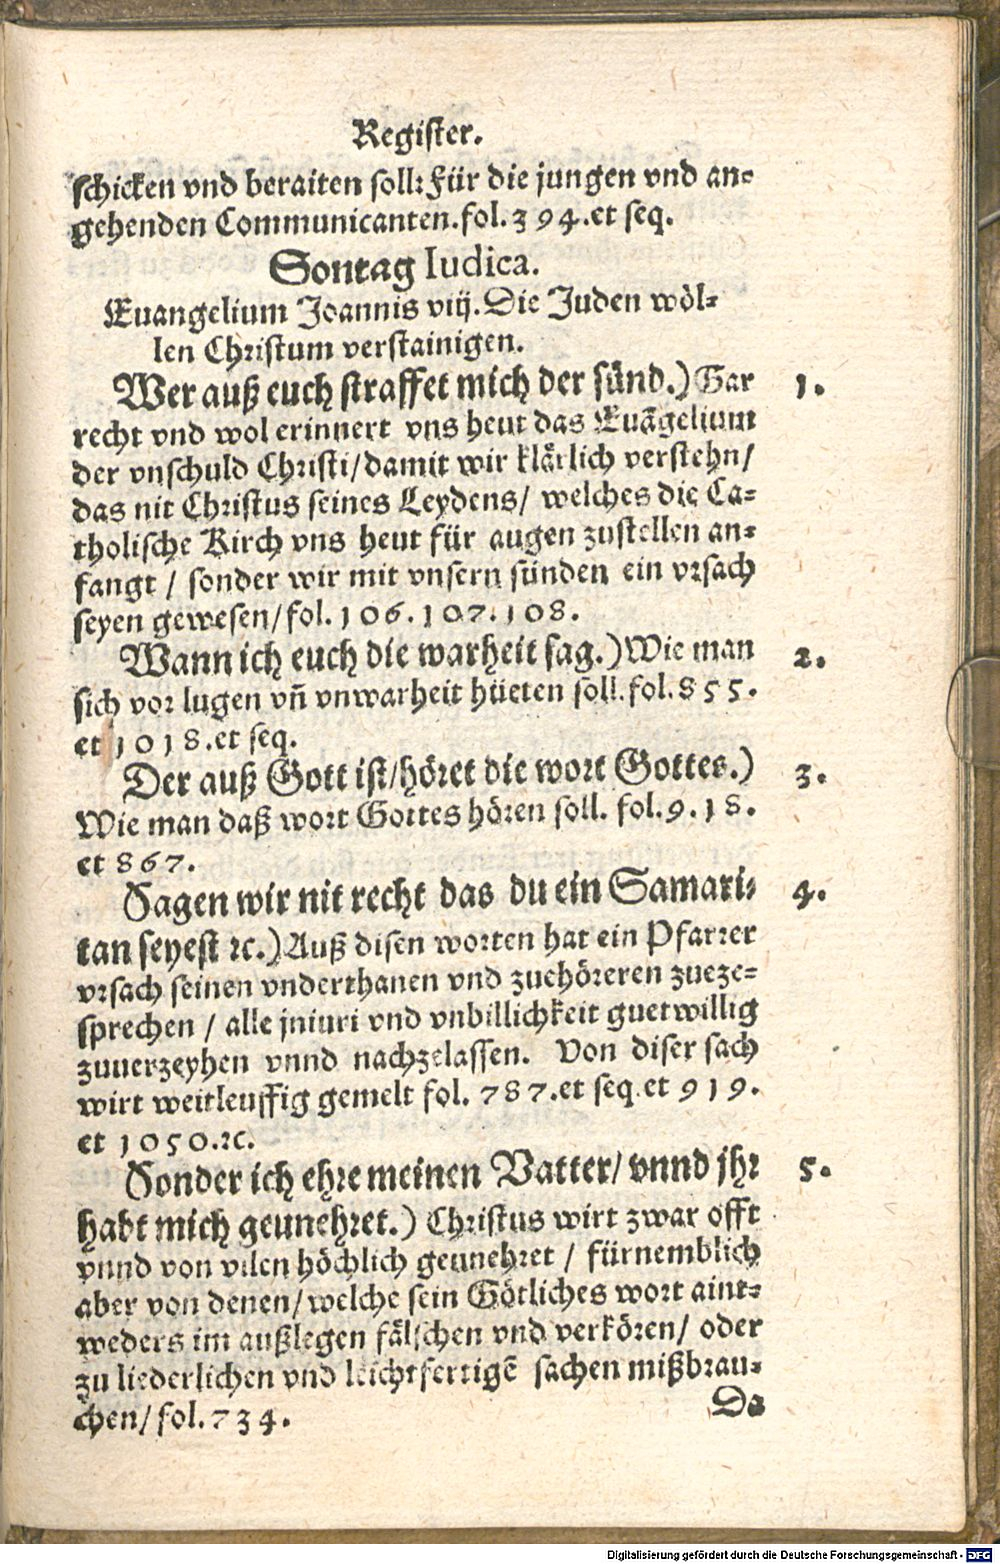 Register.
schicken vnd beraiten soll: Für die jungen vnd an-
gehenden Communicanten. fol. 394. et seq.
Sontag Iudica.
Euangelium Joannis viij. Die Juden wöl-
len Christum verstainigen.
Wer auß euch straffet mich der sünd.) Gar 1.
recht vnd wol erinnert vns heut das Euãgelium
der vnschuld Christi/ damit wir klärlich verstehn/
das nit Christus seines Leydens/ welches die Ca-
tholische Kirch vns heut für augen zustellen an-
fangt / sonder wir mit vnsern sünden ein vrsach
seyen gewesen/ fol. 106. 107. 108.
Wann ich euch die warheit sag.) Wie man 2.
sich vor lugen vñ vnwarheit hüeten soll. fol. 855.
et 1018. et seq.
Der auß Gott ist/ höret die wort Gottes.) 3.
Wie man daß wort Gottes hören soll. fol. 9. 18.
et 867.
Sagen wir nit recht das du ein Samari- 4.
tan seyest ꝛc.) Auß disen worten hat ein Pfarrer
vrsach seinen vnderthanen vnd zuehöreren zueze-
sprechen / alle jniuri vnd vnbillichkeit guetwillig
zuuerzeyhen vnnd nachzelassen. Von diser sach
wirt weitleuffig gemelt fol. 787. et seq. et 919.
et 1050. ꝛc.
Sonder ich ehre meinen Vatter/ vnnd jhr 5.
habt mich geunehret.) Christus wirt zwar offt
vnnd von vilen höchlich geunehret / fürnemblich
aber von denen/ welche sein Götliches wort aint-
weders im außlegen fälschen vnd verkören/ oder
zu liederlichen vnd leichtfertigẽ sachen mißbrau-
chen/ fol. 734.
Da
Digitalisierung gefördert durch die Deutsche Forschungsgemeinschaft - DFG